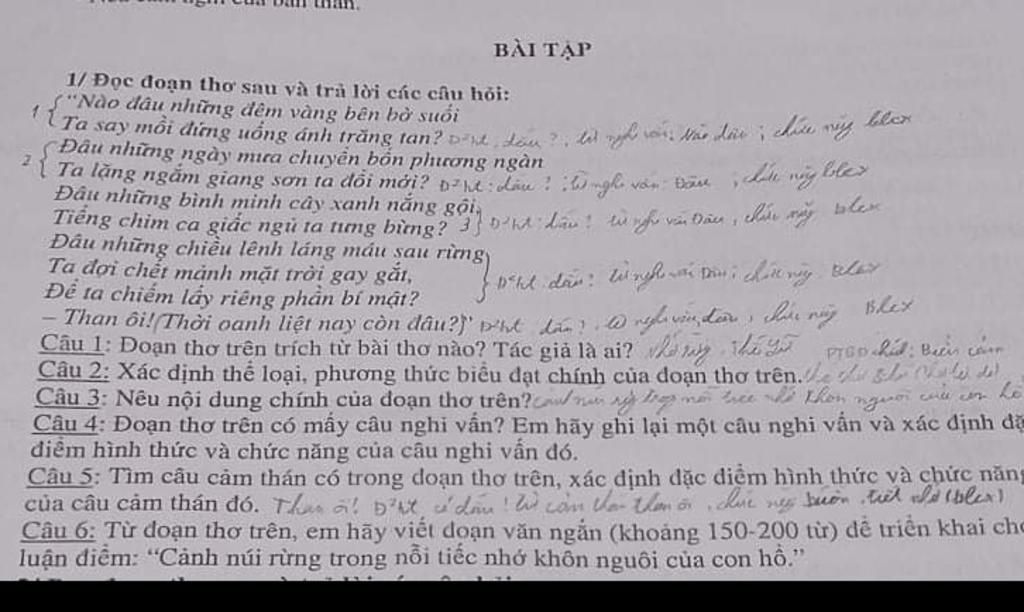 BÀI TẬP
1/ Đọc đoạn thơ sau và trả lời các câu hỏi:
1 { “Nào đâu những đêm vàng bên bờ suối
Ta say mồi đứng uống ánh trăng tan? dấu ?, từ nghi vấn: Nào đâu; chức năng blcx
2 { Đâu những ngày mưa chuyển bốn phương ngàn
Ta lặng ngắm giang sơn ta đổi mới? Đ²ht: dấu ?; từ nghi vấn: Đâu; chức năng blcx
Đâu những bình minh cây xanh nắng gội,
Tiếng chim ca giấc ngủ ta tưng bừng? 3} Đ²ht: dấu ? từ nghi vấn Đâu, chức năng blcx
Đâu những chiều lênh láng máu sau rừng
Ta đợi chết mảnh mặt trời gay gắt, } Đ²ht: dấu ? từ nghi vấn Đâu; chức năng blcx
Để ta chiếm lấy riêng phần bí mật?
– Than ôi! (Thời oanh liệt nay còn đâu?)” Đ²ht dấu ?, từ nghi vấn, đâu, chức năng Blcx
Câu 1: Đoạn thơ trên trích từ bài thơ nào? Tác giả là ai? Nhớ rừng, Thế Lữ PTBĐ chính: Biểu cảm
Câu 2: Xác định thể loại, phương thức biểu đạt chính của đoạn thơ trên.
Câu 3: Nêu nội dung chính của đoạn thơ trên? cảnh núi rừng trong nỗi tiếc nhớ khôn nguôi của con hổ
Câu 4: Đoạn thơ trên có mấy câu nghi vấn? Em hãy ghi lại một câu nghi vấn và xác định đặ
điểm hình thức và chức năng của câu nghi vấn đó.
Câu 5: Tìm câu cảm thán có trong đoạn thơ trên, xác định đặc điểm hình thức và chức năng
của câu cảm thán đó. Than ôi! Đ²ht, có dấu ! từ cảm thán than ôi, chức năng buồn, tiết nhớ (blcx)
Câu 6: Từ đoạn thơ trên, em hãy viết đoạn văn ngắn (khoảng 150-200 từ) để triển khai cho
luận điểm: “Cảnh núi rừng trong nỗi tiếc nhớ khôn nguôi của con hổ.”